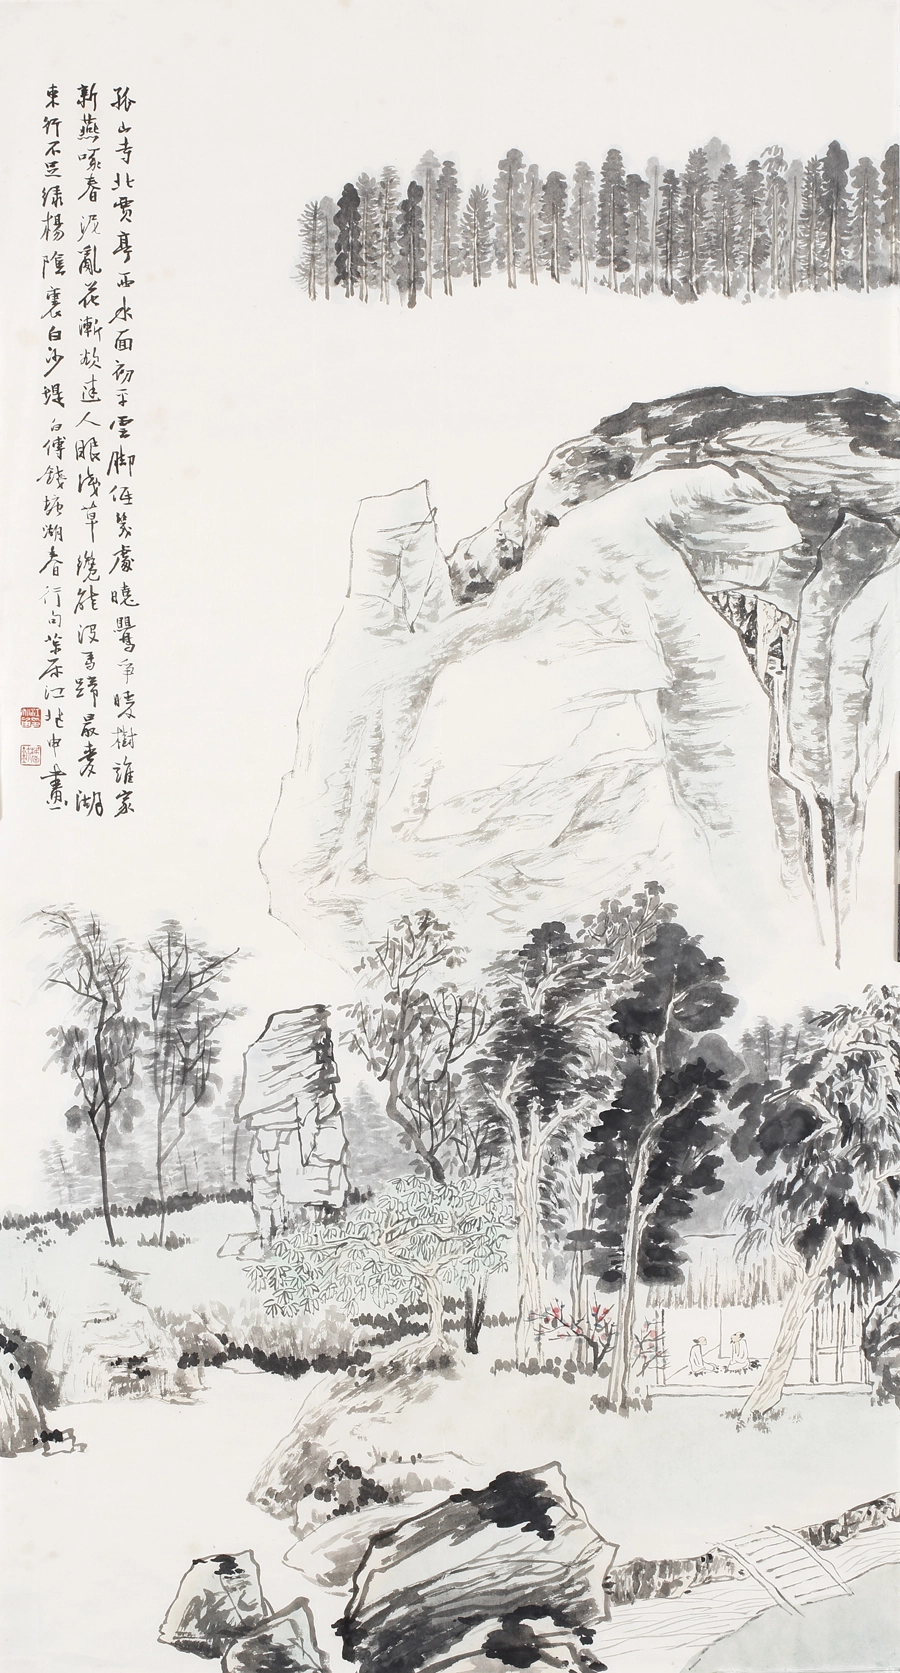 孤山寺北賈亭西水面初平雲脚低幾處曉鶯爭暖樹誰家
新燕啄春泥亂花漸欲迷人眼淺草纔能沒馬蹄最愛湖
東行不足綠楊陰裏白沙堤 白傅錢塘湖春行句 茮原江兆申畫